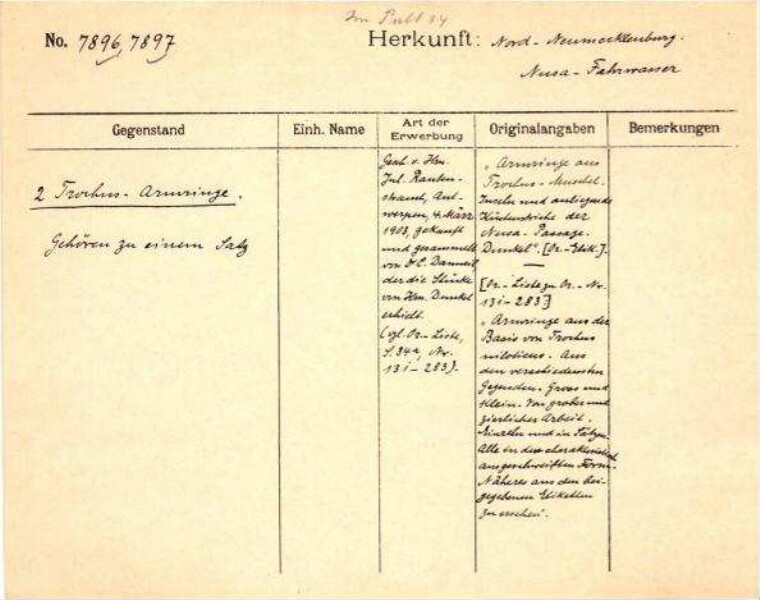 Im Pult 14
No. 7896, 7897
Herkunft: Nord-Neumecklenburg.
Nusa-Fahrwasser
Gegenstand
Einh. Name
Art der
Erwerbung
Originalangaben
Bemerkungen
2 Trochus-Armringe.
Gehören zu einem Satz
Gesch. v. Hrn.
Jul. Rauten-
strauch, Ant-
werpen, 4. März
1903, gekauft
und gesammelt
von Danneil,
der die Stücke
von Hrn. Dunkel
erhielt.
(vgl. Or.-Liste,
S. 34a, Nr.
13 i - 283).
„Armringe aus
Trochus-Muschel.
Inseln und anliegende
Küstenstriche der
Nusa-Passage.
Dunkel“. [Or.-Etik.].
[Or.-Liste zu Or.-Nr.
13 i - 283]
„Armringe aus der
Basis von Trochus
niloticus. Aus
den verschiedensten
Gegenden. Gross und
Klein. Von grober und
zierlicher Arbeit.
Einzeln und in Sätzen.
Alle in der charakteristisch
ausgeschweiften Form.
Näheres aus den bei-
gegebenen Etiketten
zu ersehen“.